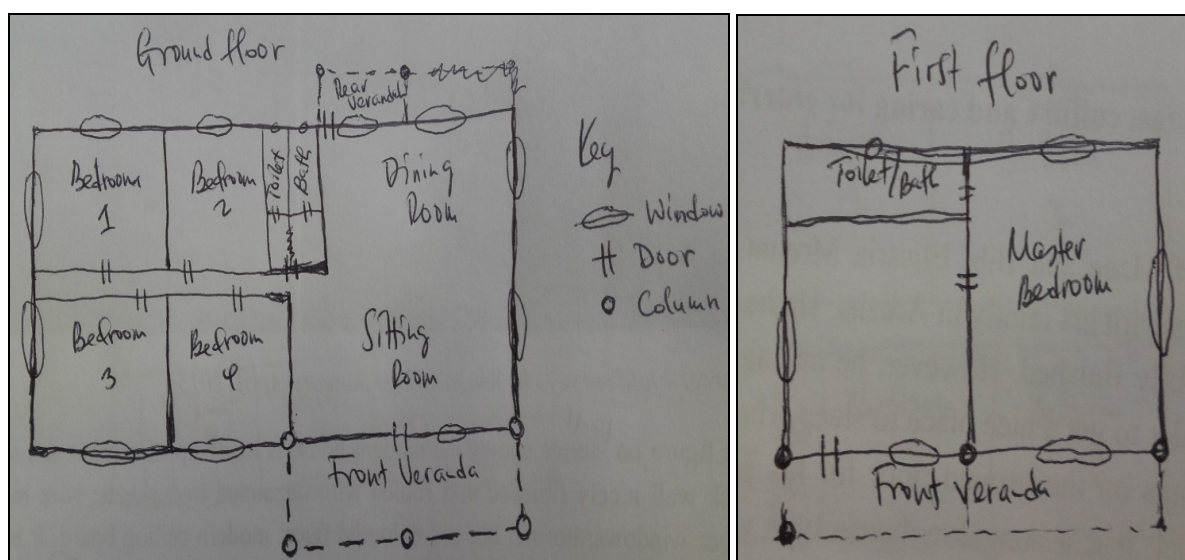 Ground floor
Rear
Veranda
Bedroom
1
Bedroom
2
Toilet
Bath
Dining
Room
Bedroom
3
Bedroom
4
Sitting
Room
Front Veranda
Key
Window
Door
Column
First floor
Toilet/Bath
Master
Bedroom
Front Veranda